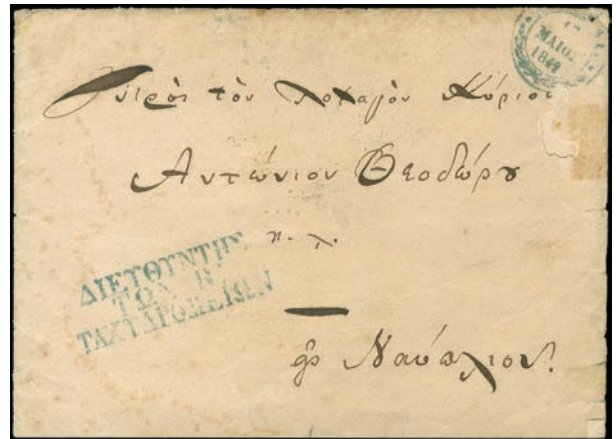 ΜΑΙΟΣ
1849
πρὸς τὸν Λοχαγὸν Κύριον
Ἀντώνιον Θεοδώρου
ΔΙΕΥΘΥΝΤΗΣ
ΤΩΝ Β.
ΤΑΧΥΔΡΟΜΕΙΩΝ
Ναύπλιον.